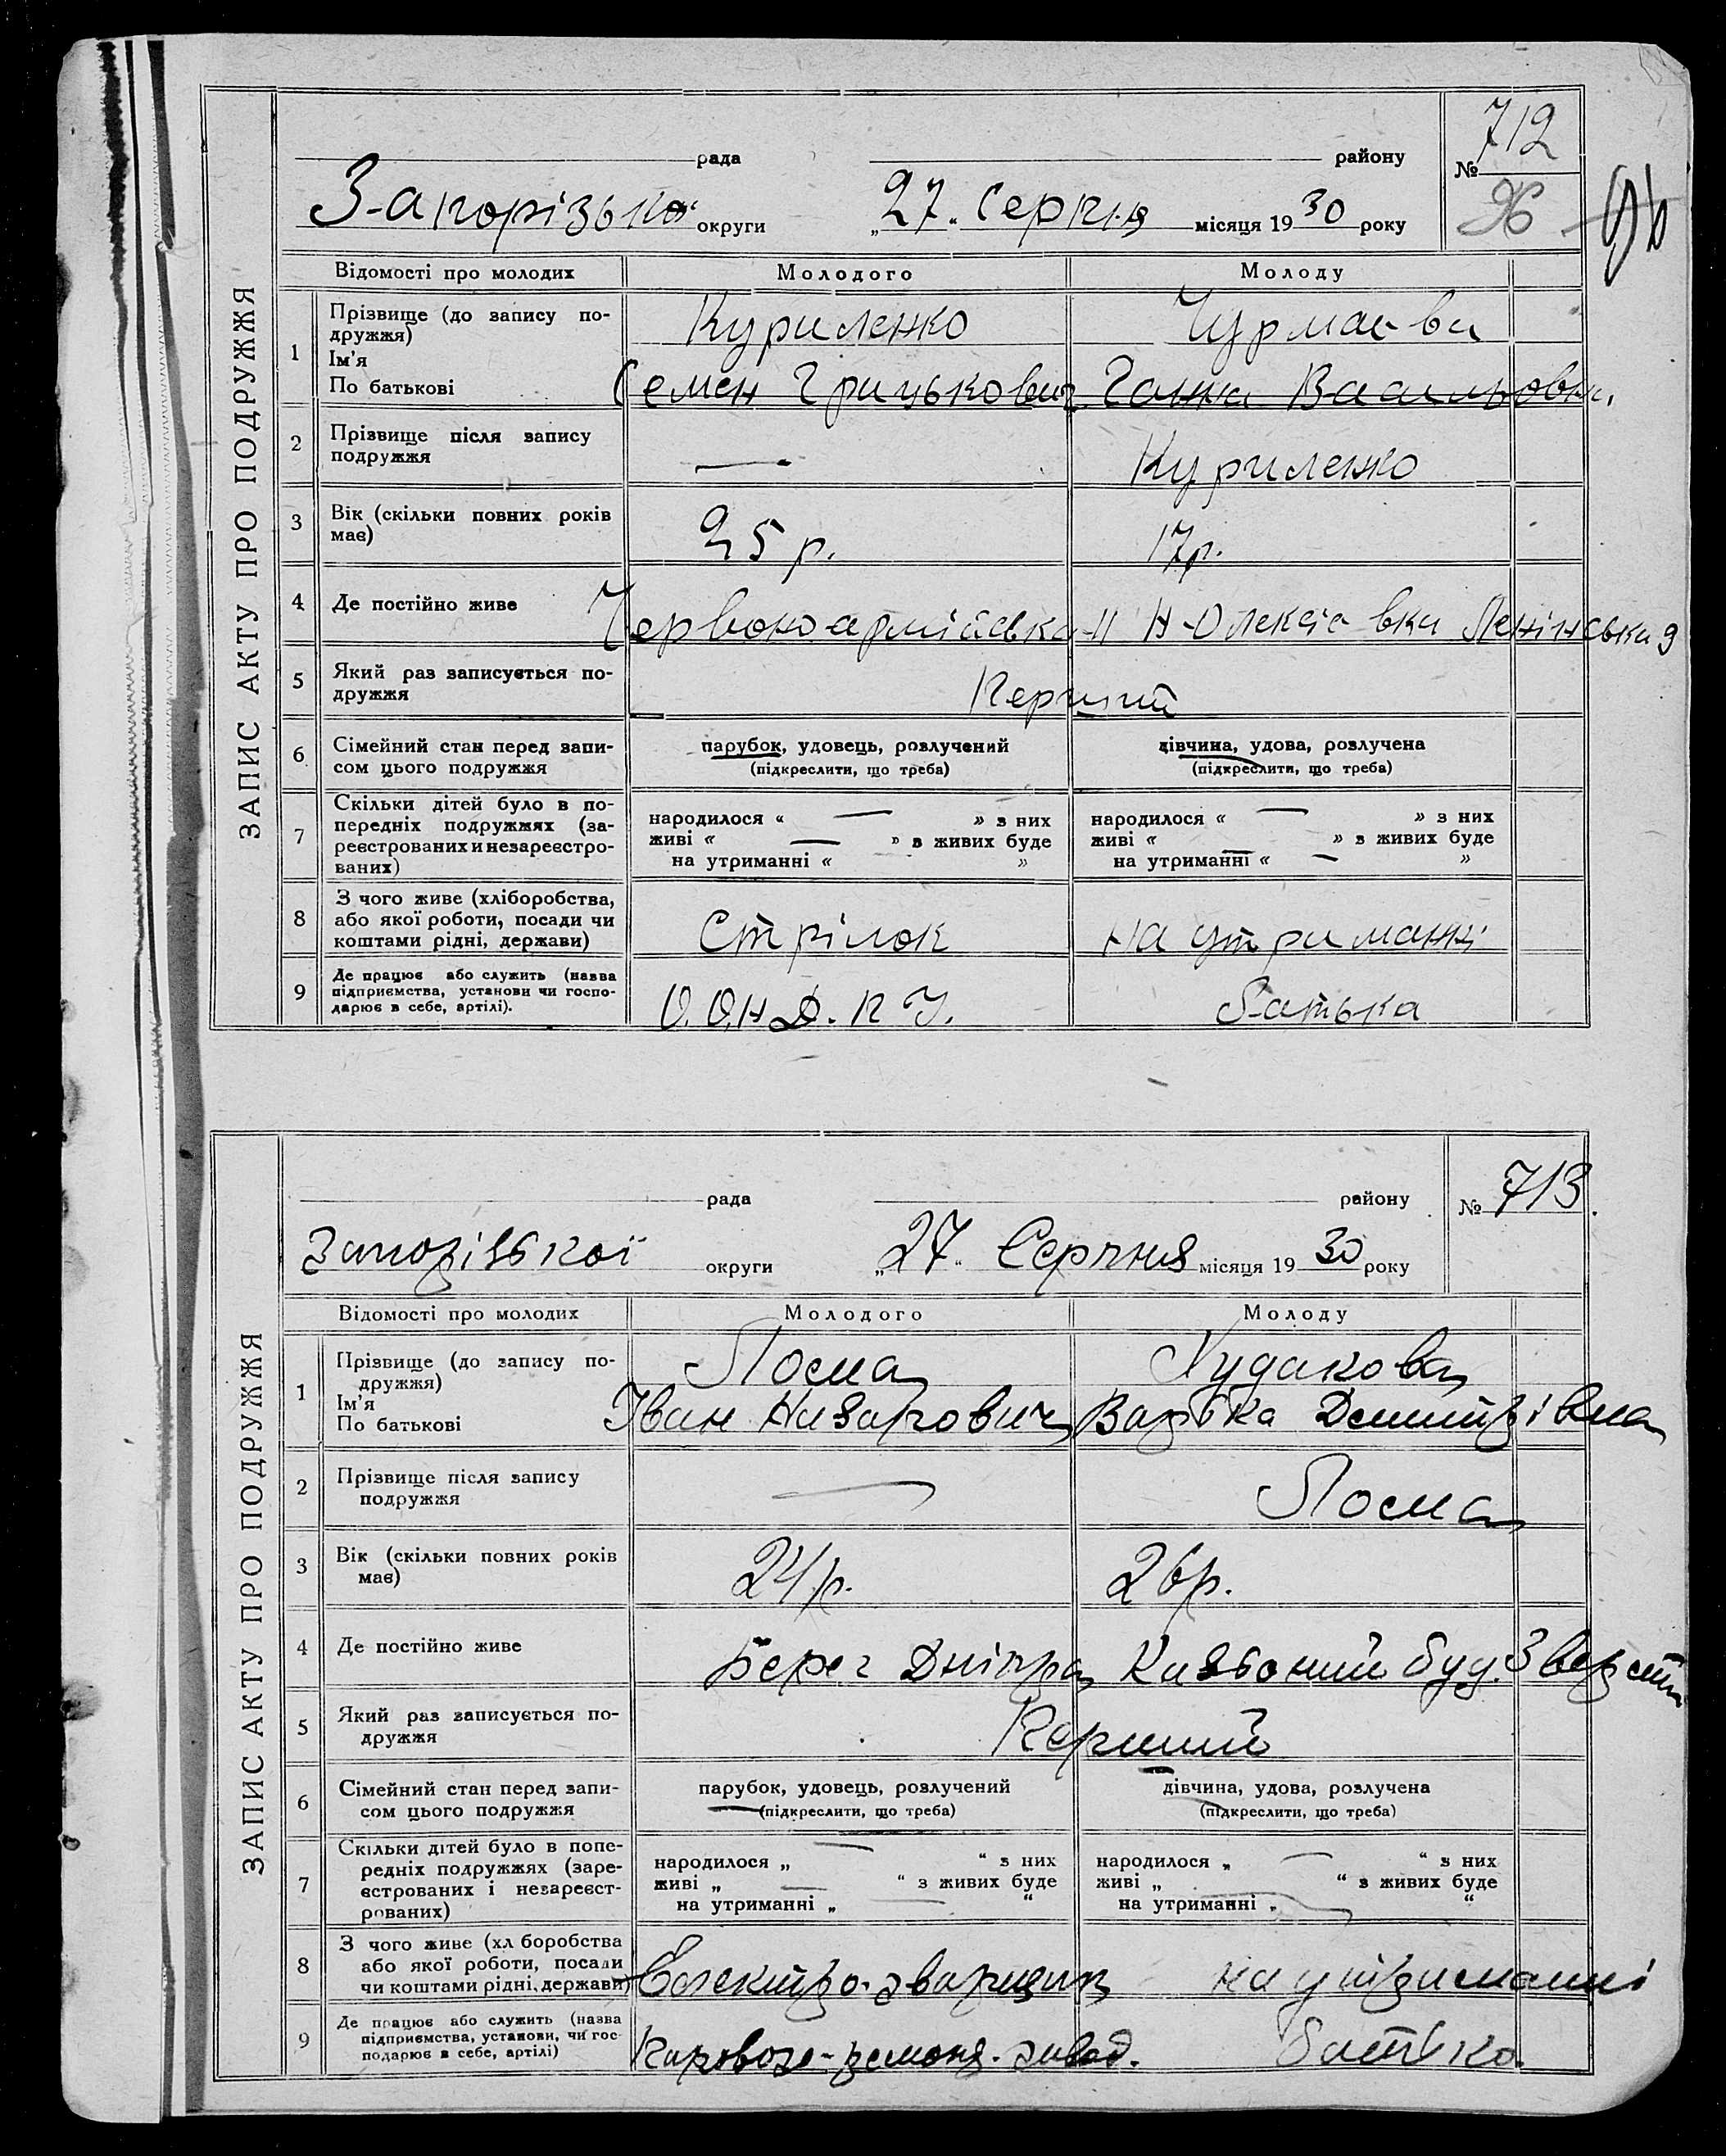 ЗАПИС АКТУ ПРО ПОДРУЖЖЯ
рада району № 712
Запорізької округи „27" Серпня місяця 1930 року
96
96
Відомості про молодих Молодого Молоду
1 Прізвище (до запису по-
дружжя)
Ім'я
По батькові
Куриленко
Семен Грицькович
Ганна Васильовн.
2 Прізвище після запису
подружжя
— Куриленко
3 Вік (скільки повних років
має)
25 р. 17 р.
4 Де постійно живе Червоноармійська-11 Н-Олексіевка Ленінська 9
5 Який раз записується по-
дружжя
Перший
6 Сімейний стан перед запи-
сом цього подружжя
парубок, удовець, розлучений
(підкреслити, що треба)
дівчина, удова, розлучена
(підкреслити, що треба)
7 Скільки дітей було в по-
передніх подружжях (за-
реєстрованих и незареєстро-
ваних)
народилося « — » з них
живі « — » в живих буде
на утриманні « »
народилося « — » з них
живі « — » з живих буде
на утриманні « — »
8 З чого живе (хліборобства,
або якої роботи, посади чи
коштами рідні, держави)
Стрілок на утриманні
9 Де працює або служить (назва
підприємства, установи чи госпо-
дарює в себе, артілі).
батька
ЗАПИС АКТУ ПРО ПОДРУЖЖЯ
рада району № 713.
Запорізької округи „27" Серпня місяця 1930 року
Відомості про молодих Молодого Молоду
1 Прізвище (до запису по-
дружжя)
Ім'я
По батькові
Лосма Худакова
Іван Назарович Варька Демитрівна
2 Прізвище після запису
подружжя
— Лосма
3 Вік (скільки повних років
має)
24 р. 26 р.
4 Де постійно живе Берег Дніпра Казьоний буд. 3 верст
5 Який раз записується по-
дружжя
Перший
6 Сімейний стан перед запи-
сом цього подружжя
парубок, удовець, розлучений
(підкреслити, що треба)
дівчина, удова, розлучена
(підкреслити, що треба)
7 Скільки дітей було в попе-
редніх подружжях (заре-
єстрованих і незареєст-
рованих)
народилося „ — “ з них
живі „ — “ з живих буде
на утриманні „ — “
народилося „ — “ з них
живі „ “ з живих буде
на утриманні „ — “
8 З чого живе (хл боробства
або якої роботи, посади
чи коштами рідні, держави)
Електро-зварщик на утриманні
9 Де працює або служить (назва
підприємства, установи, чи гос-
подарює в себе, артілі)
Паровозо-ремонт. завод. батька.